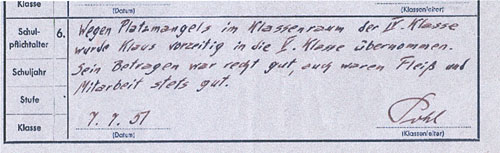 Klasse (Datum) (Klassenleiter)
Schul-
pflichtalter
Schuljahr
Stufe
Klasse
6. Wegen Platzmangels im Klassenraum der IV. Klasse
wurde Klaus vorzeitig in die V. Klasse übernommen.
Sein Betragen war recht gut, auch waren Fleiß und
Mitarbeit stets gut.
7. 7. 51 Pohl
(Datum) (Klassenleiter)